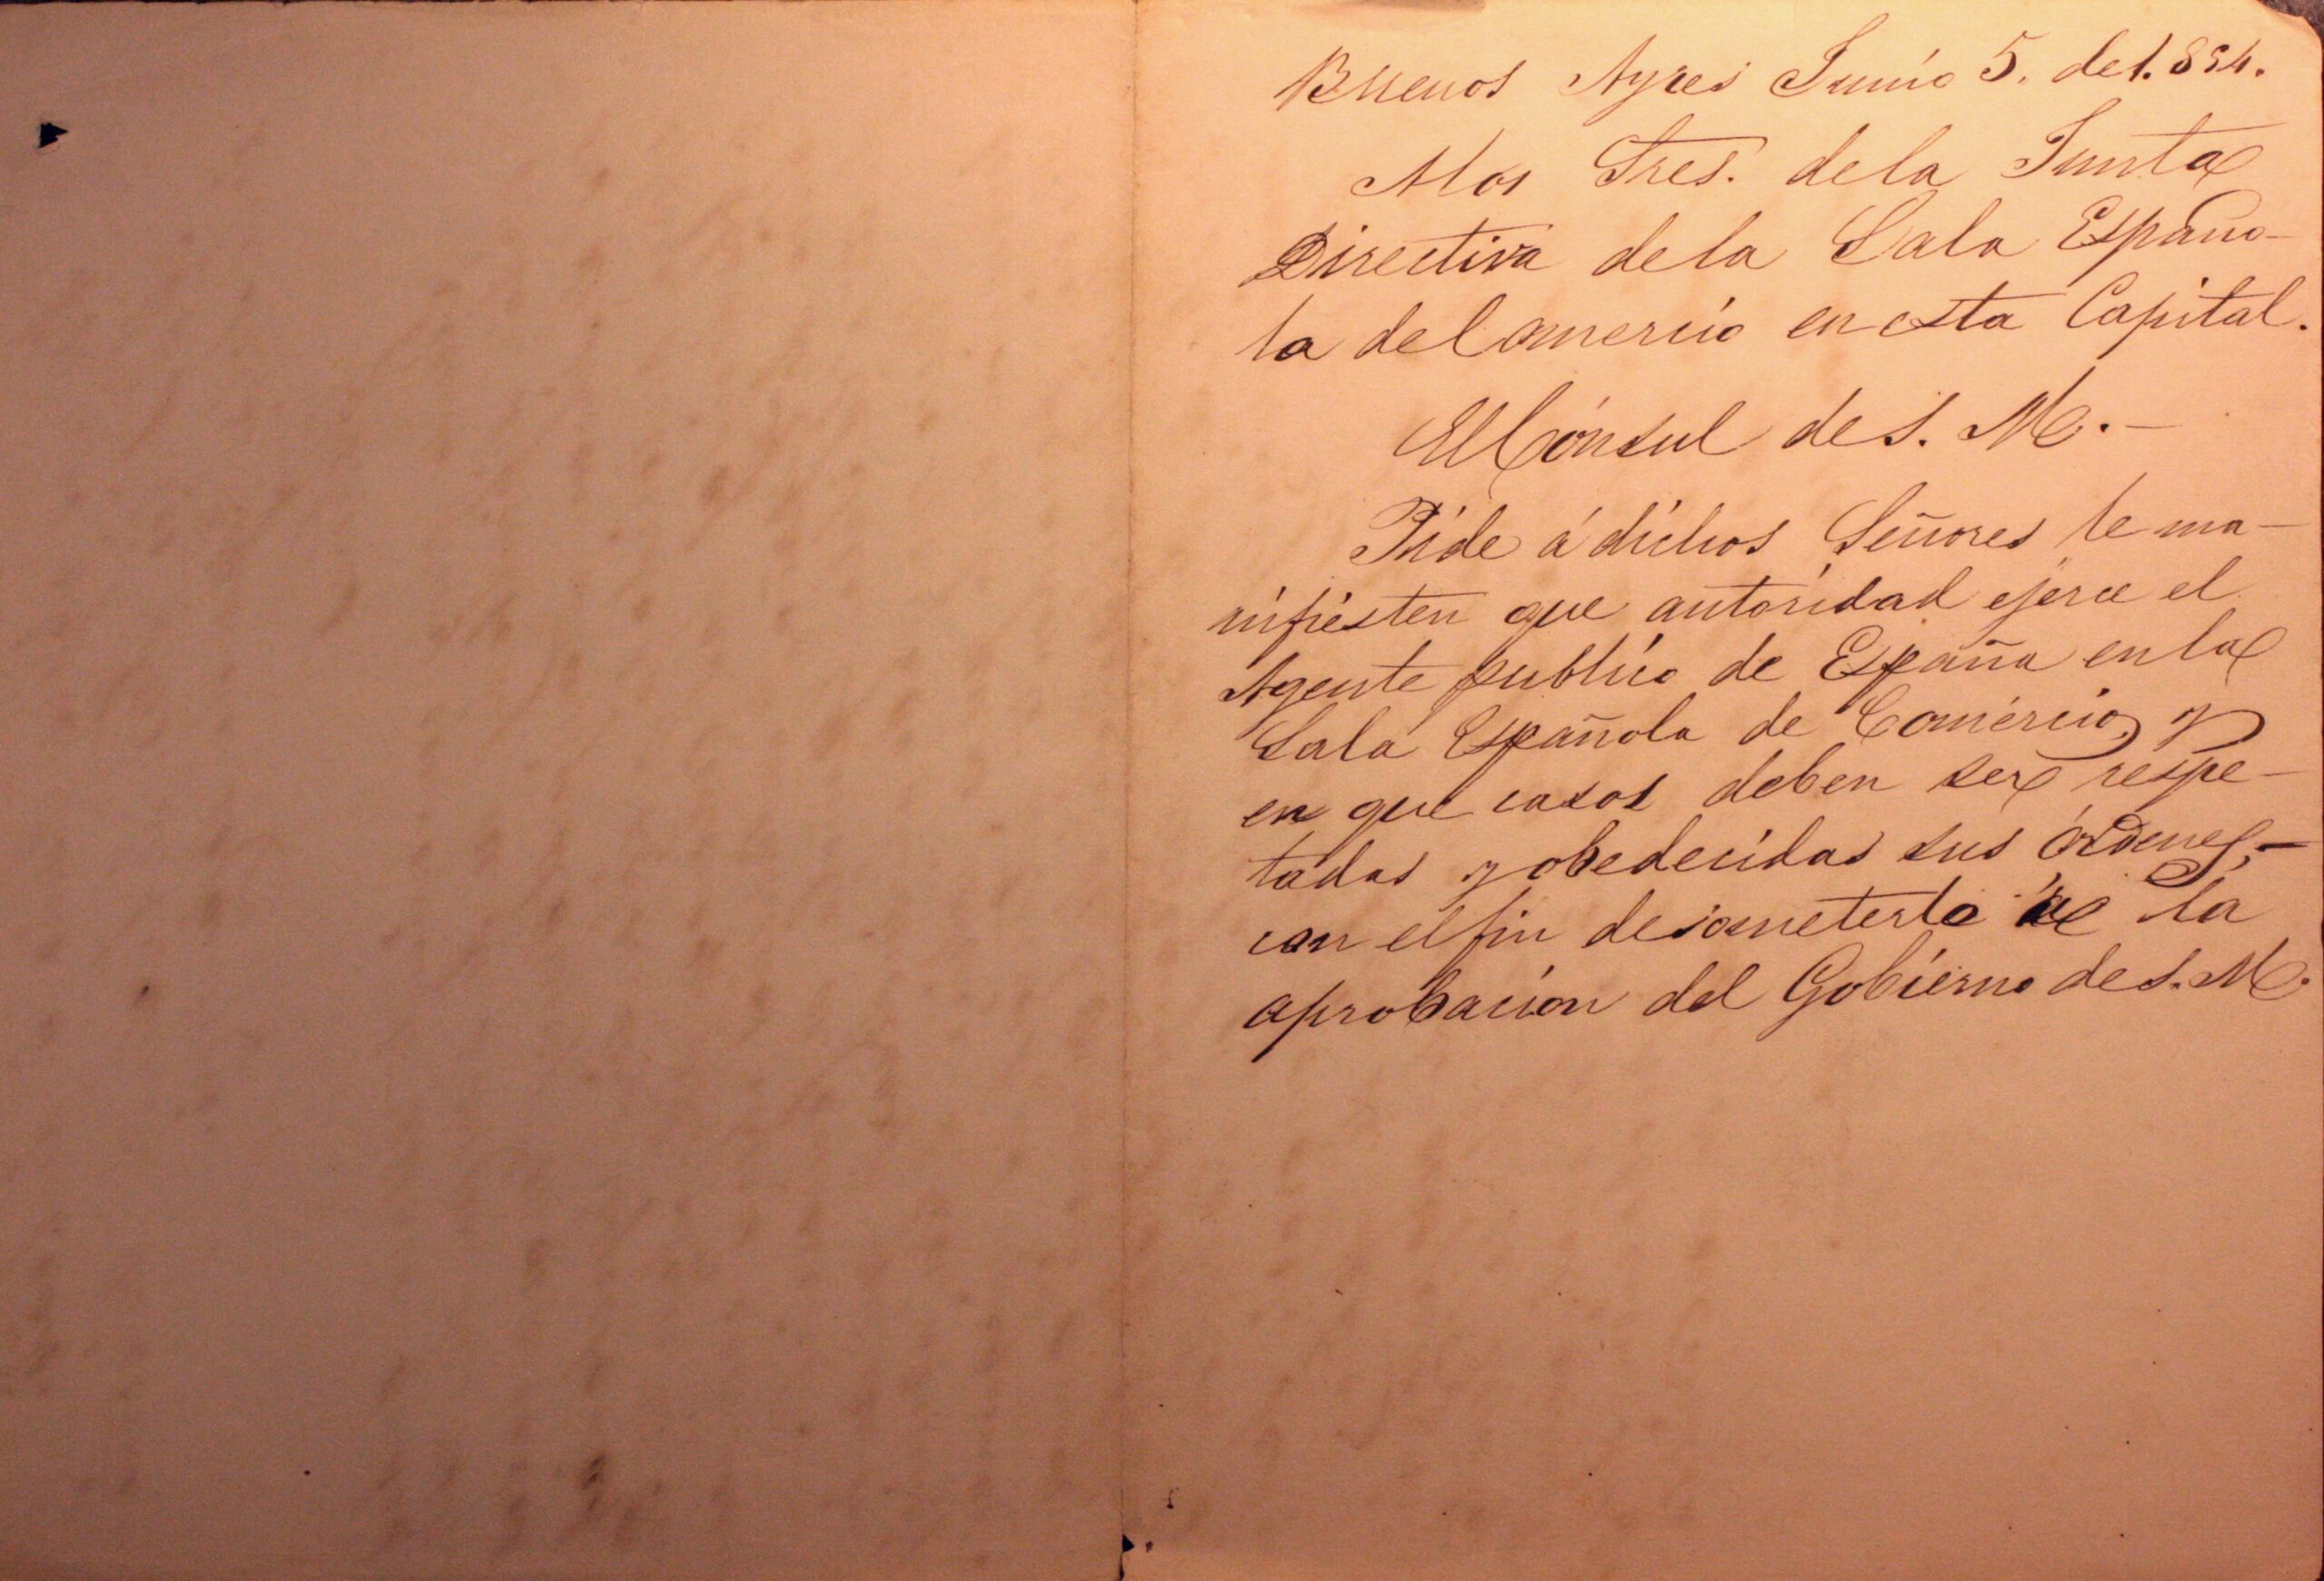 Buenos Ayres Junio 5. de 1.854.
A los Sres. de la Junta
Directiva de la Sala Españo-
la de Comercio en esta Capital.
El Cónsul de S. M. -
Pide á dichos Señores le ma-
nifiesten que autoridad ejerce el
Agente publico de España en la
Sala Española de Comercio, y
en que casos deben ser respe-
tadas y obedecidas sus órdenes, -
con el fin de someterlo á la
aprobacion del Gobierno de S. M.